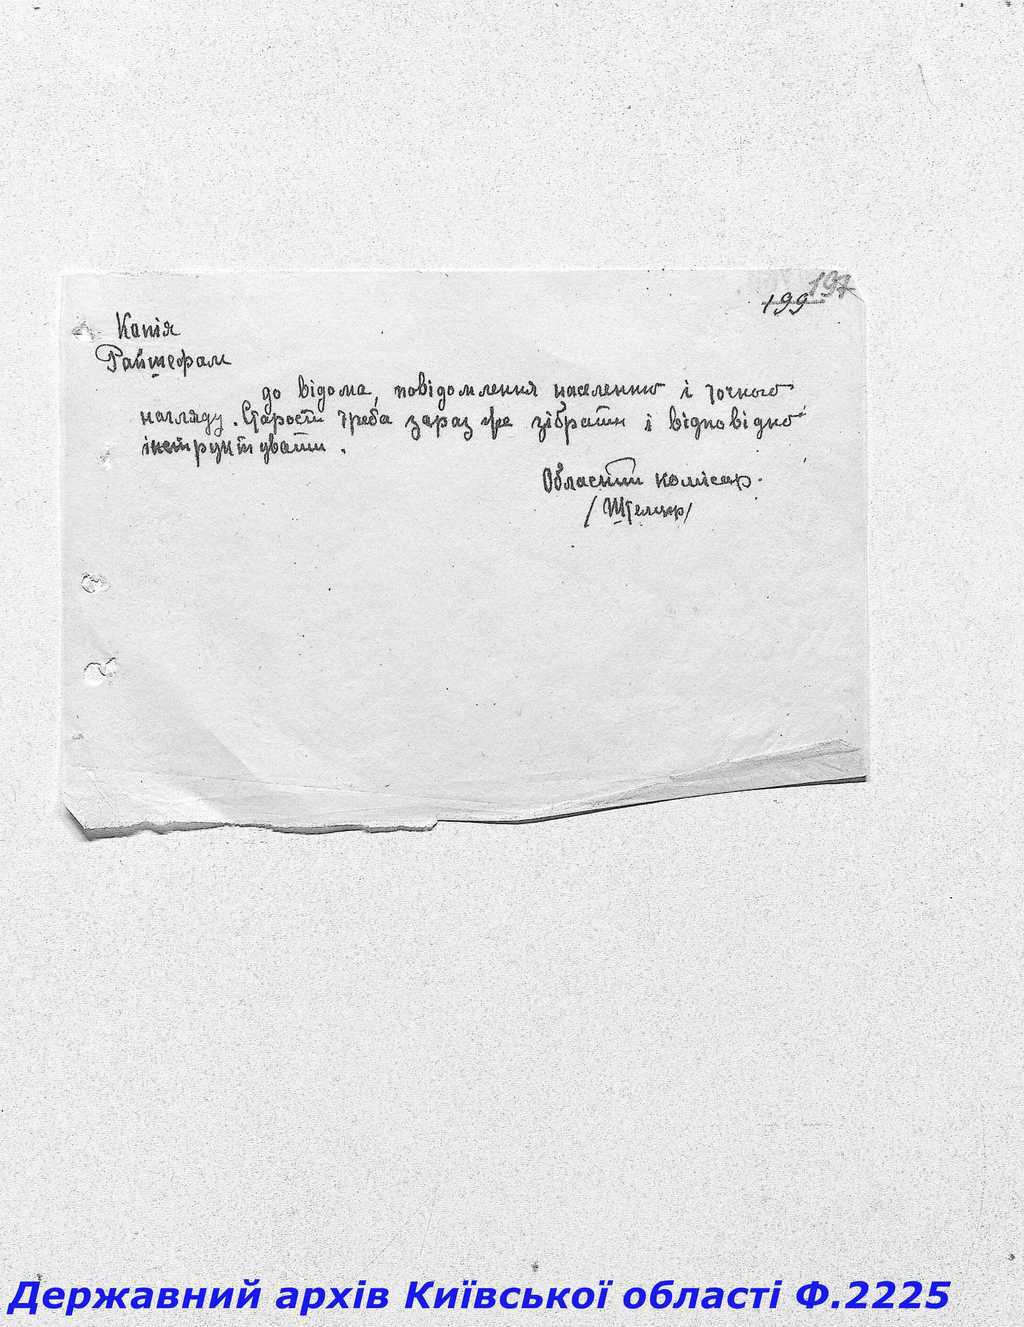 197
199
Копія
Райшефам
до відома, повідомлення населенню і точного
нагляду. Старости треба зараз же зібрати і відповідно
інструктувати.
Обласний комісар.
/Штельцер/
Державний архів Київської області Ф.2225